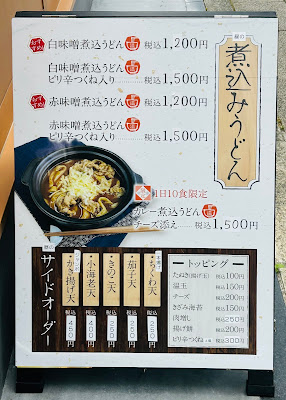 鍋の
煮込みうどん
おすすめ
白味噌煮込うどん 税込1,200円
白味噌煮込うどん
ピリ辛つくね入り 税込1,500円
おすすめ
赤味噌煮込うどん 税込1,200円
赤味噌煮込うどん
ピリ辛つくね入り 税込1,500円
1日10食限定
カレー煮込うどん
チーズ添え 税込1,500円
サイドオーダー
かき揚げ天 税込 400円
小海老天 税込
きのこ天 税込
茄子天 税込
ちくわ天 税込
トッピング
たぬき(揚げ玉) 税込100円
温玉 税込150円
チーズ 税込200円
きざみ海苔 税込150円
肉増し 税込250円
揚げ餅 税込200円
ピリ辛つくね 税込300円